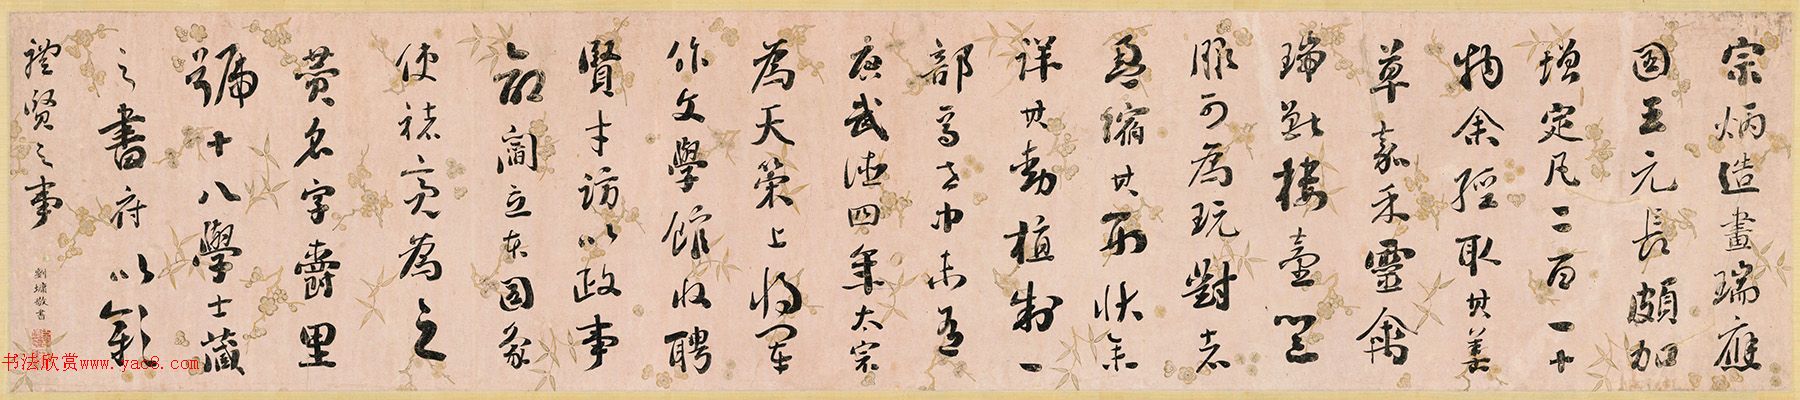 宗炳造畫瑞應
圖王元長頗加
增定凡二百一十
物余經取其善
草嘉禾靈禽
瑞獸樓臺器
服可為玩對者
盈縮其形狀參
詳其動植制一
部未有
唐武德四年太宗
為天策上將軍
作文學館收聘
賢才訪以政事
命閻立本圖象
使褚亮為之
贊名字爵里
號十八學士藏
之書府以彰
禮賢之事
劉墉敬書
书法欣赏www.yac8.com